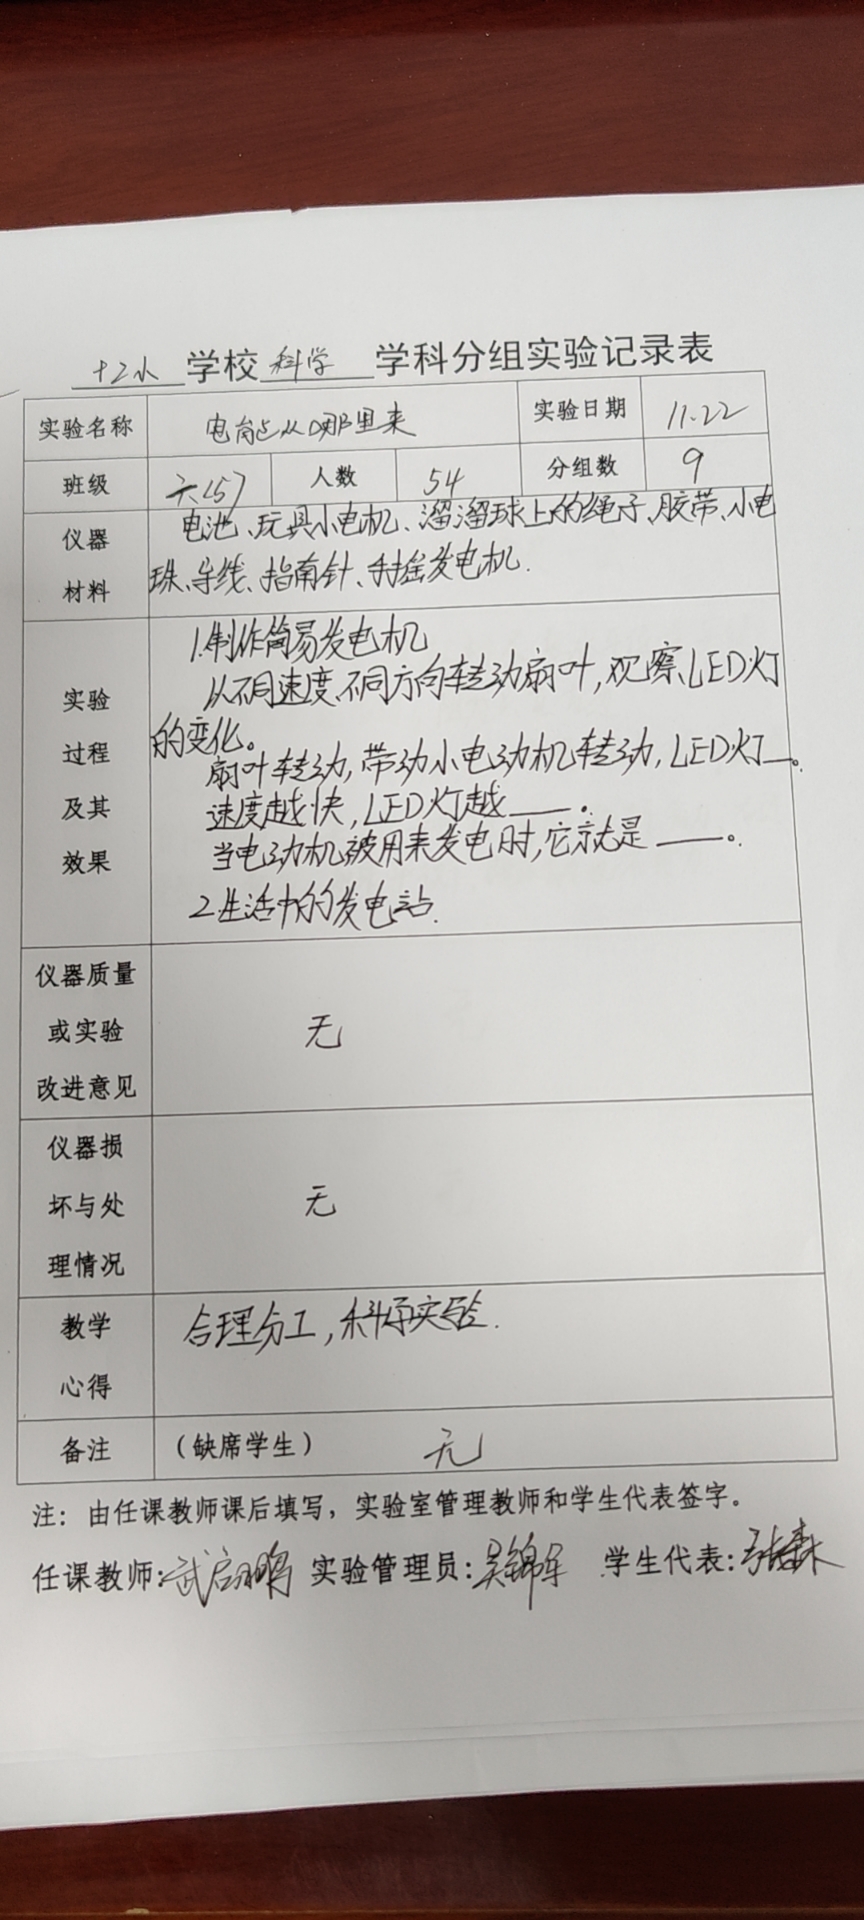 十二小 学校 科学 学科分组实验记录表
实验名称 电能从哪里来 实验日期 11.22
班级 六(5) 人数 54 分组数 9
仪器材料 电池、玩具小电机、溜溜球上的绳子、胶带、小电
珠、导线、指南针、手摇发电机.
实验过程及其效果
1.制作简易发电机
从不同速度、不同方向转动扇叶,观察LED灯
的变化。
扇叶转动,带动小电动机转动,LED灯__。
速度越快,LED灯越____。
当电动机被用来发电时,它就是____。
2.生活中的发电站.
仪器质量或实验改进意见 无
仪器损坏与处理情况 无
教学心得 合理分工,科学实验.
备注 (缺席学生) 无
注:由任课教师课后填写,实验室管理教师和学生代表签字。
任课教师:武启鹏 实验管理员:吴锦军 学生代表: